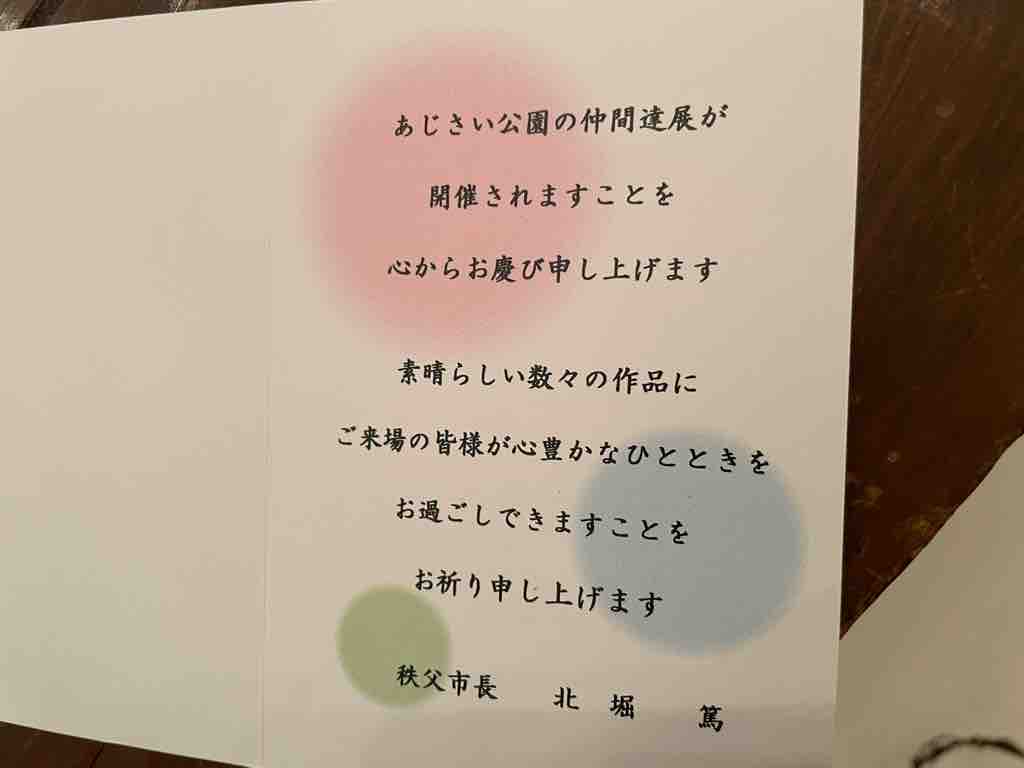 あじさい公園の仲間達展が
開催されますことを
心からお慶び申し上げます
素晴らしい数々の作品に
ご来場の皆様が心豊かなひとときを
お過ごしできますことを
お祈り申し上げます
秩父市長　北　堀　　篤